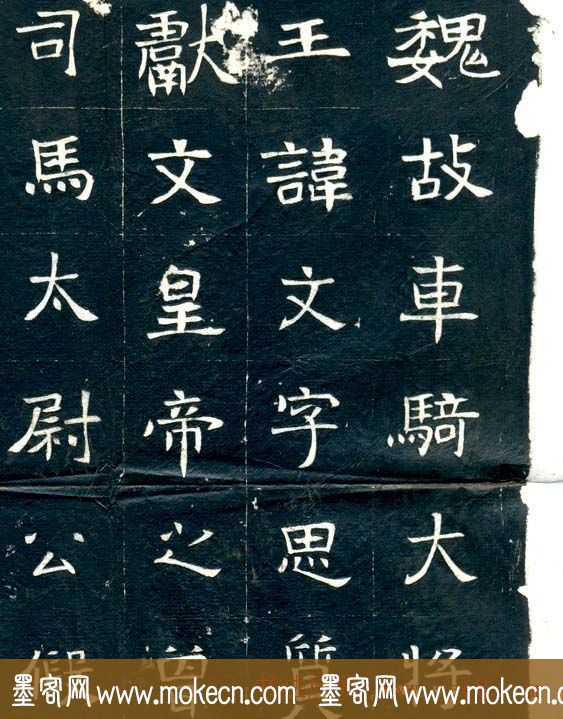 魏故車騎大將
王諱文字思質
獻文皇帝之曾
司馬太尉公
墨客网 www.mokecn.com 墨客网 www.mokecn.com